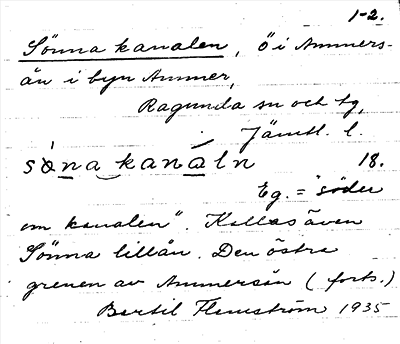 1-2.
Sönna kanalen, ö i Ammers-
ån i byn Ammer,
Ragunda sn och tg,
Jämtl. l.
söna kanaln 18.
Eg. = "söder
om kanalen". Kallas även
Sönna lillån. Den östra
grenen av Ammersån (forts.)
Bertil Flemström 1935